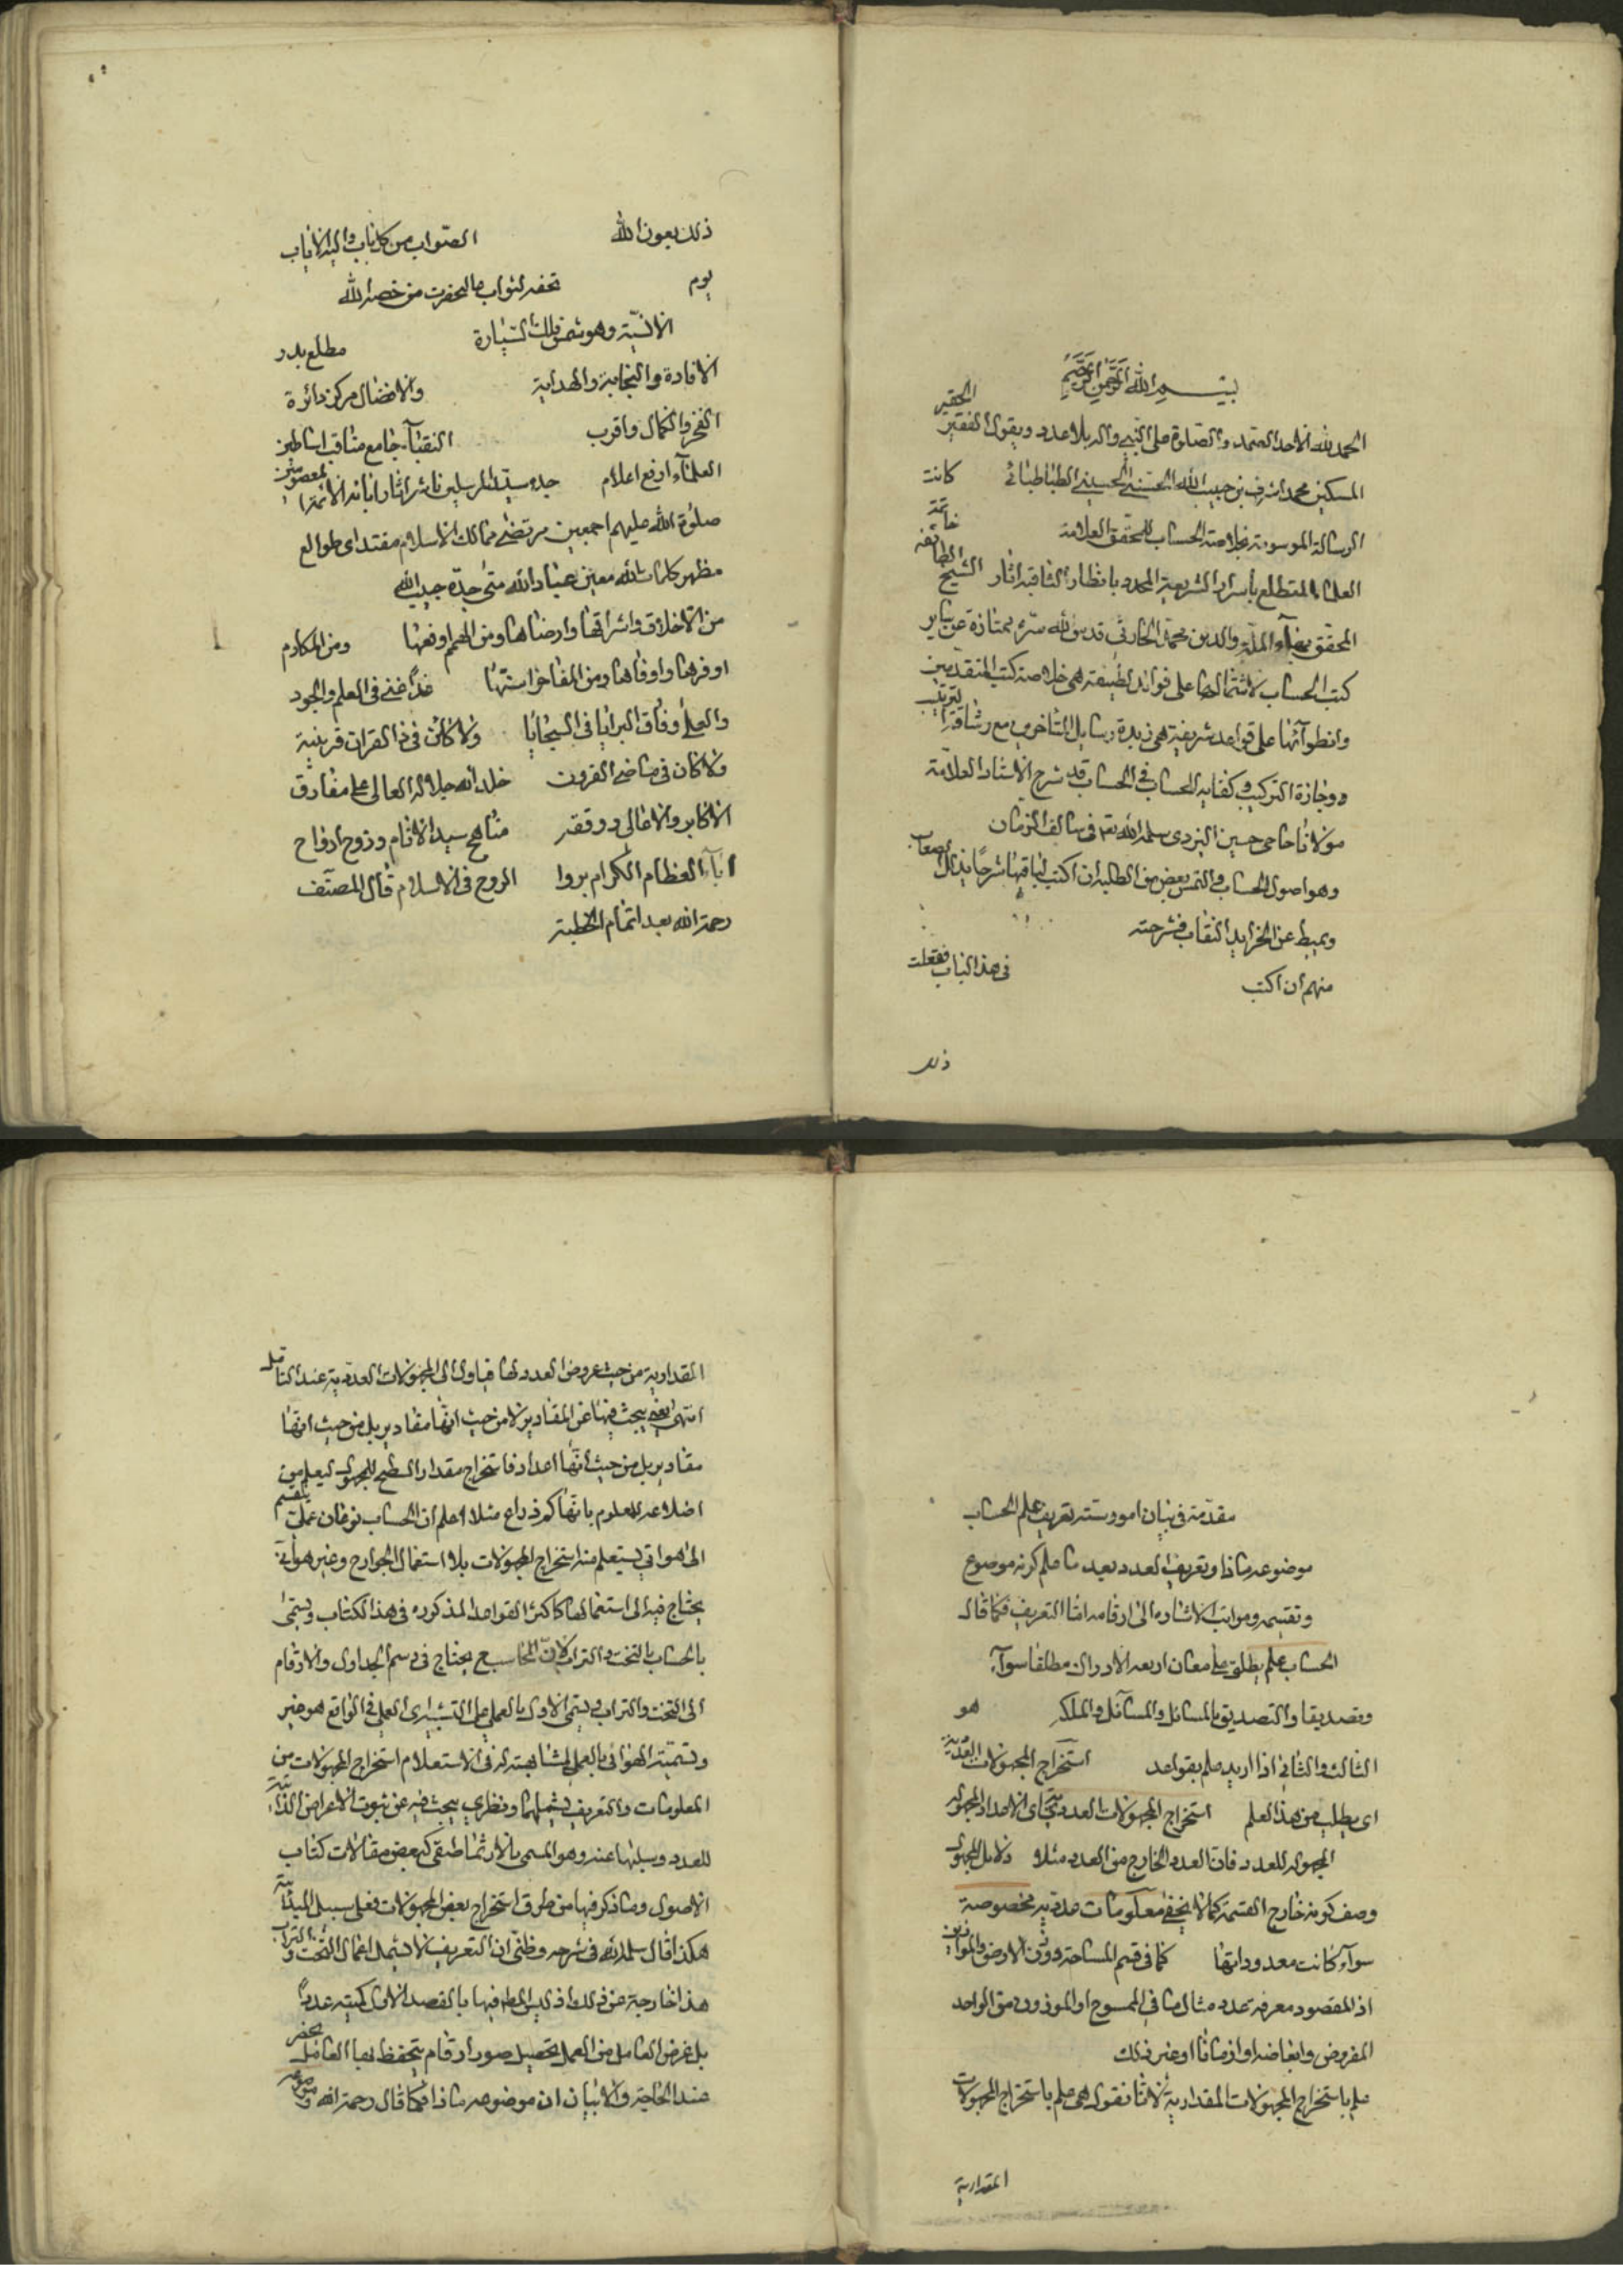 بسم الله الرحمن الرحيم
الحمد لله الاحد الصمد والصلوة على النبي وآله بلا عدد ويقول الفقير الحقير
المسكين محمد اشرف بن حبيب الله الحسني الحسيني الطباطبائي كانت
الرسالة الموسومة بخلاصة الحساب للمحقق العلامة خاتمة
العلماء المتطلع بأسرار الشريعة المجدد بانظاره الثاقبة اثار الشيخ الطائفه
المحقق بهآء الملة والدين محمد الحارثي قدس الله سره ممتازة عن ساير
كتب الحساب لاشتمالها على فوائد لطيفة هي خلاصة كتب المتقدمين
وانطوآئها على قواعد شريفة هي زبدة رسايل المتأخرين مع رشاقة لترتيب
ووجازة التركيب وكفاية الحساب في الحساب قد شرح الاستاد العلامة
مولانا حاجي حسين اليزدي سلمه الله تعم في سالف الزمان
وهو اصول الحساب والتمس بعض من الطلبة ان اكتب لباقيها شرحا يذلل الصعاب
ويميط عن الخرايد النقاب فشرحته
منهم ان اكتب في هذا الباب ففعلت
ذلك
ذلك بعون الله الصواب من كل باب واليه الاياب
يوم تحفه لنواب عاليحضرت من خصه الله
الانسية وهو شمس فلك السيارة مطلع بدر
الافادة والنجابة والهداية والافضال مركز دائرة
الفخر والكمال واقرب النقبآء جامع مناقب اساطين
العلمآء ارفع اعلام جده سيد المرسلين ناشر اثار ابائه الائمة المعصومين
صلوة الله عليهم اجمعين مرتضى ممالك الاسلام مقتداى طوالع
مظهر كلمات الله معين عباد الله متى جده حبيب الله
من الاخلاق واشراقها وارضاها ومن الهمم اوفعها ومن المكارم
اوفرها واوفاها ومن المفاخر اسنها غدا في العلم والجود
والعلى وفاق البرايا في السجايا ولا كائن في ذا القران قرينه
ولا كان في ماضي القرون خلد الله جلاله العالى على مفارق
الاكابر والاعالى ووفقه مناهج سيد الانام وروح ارواح
ابآء العظام الكرام بروا الروح في الاسلام قال المصنف
رحمة الله بعد اتمام الخطبة
مقدمة في بيان امور ستة تعريف علم الحساب
موضوعه ماذا وتعريف العدد بعد ما علم كونه موضوع
وتقسيمه ومراتبه الاشاره الى ارقامه اما التعريف فكما قال
الحساب علم يطلق على معان اربعه الادراك مطلقا سوآء
وتصديقا والتصديق بالمسائل والمسآئل والملكه هو
الثالث والثاني اذا اريد علم بقواعد استخراج المجهولات العددية
اى يطلب من هذا العلم استخراج المجهولات العددية اى الاعداد المجهوله
المجهوله للعدد فان العدد الخارج من العدد مثلا
وصف كونه خارج القسمة كما لا يخفى معلومات عدديه مخصوصة
سوآء كانت معدوداتها كما في قسم المساحة ووزن الارض والموازين
اذ المقصود معرفة عدد مثال ما في الممسوح او الموزون من الواحد
المفروض وابعاضه او ازمانا او غير ذلك
علم باستخراج المجهولات المقدارية لانا نقول هي علم باستخراج المجهولات
المقدارية
المقدارية من حيث عروض العدد لها فياول الى المجهولات العددية عند التأمل
انتهى يعني يبحث فيها عن المقادير لا من حيث انها مقادير بل من حيث انها
مقادير بل من حيث انها اعداد فاستخراج مقدار السطح المجهول ليعلم من
اضلاعه المعلوم بانها كم ذراع مثلا اعلم ان الحساب نوعان عملى ينقسم
الى هوائي يستعلم منه استخراج المجهولات بلا استعمال الجوارح وغير هوائي
يحتاج فيه الى استعمالها كاكثر القواعد المذكوره في هذا الكتاب ويسمى
بالحساب بالتخت والتراب لان المحاسب يحتاج في رسم الجداول والارقام
الى التخت والتراب ويسمى الاول بالعملى على التشبيه اى العملي في الواقع هو غير
وتسمية الهوائي بالعملى لمشابهته له في الاستعلام استخراج المجهولات من
المعلومات والتعريف يشملهما ونظري يبحث فيه عن ثبوت الاعراض الذاتية
للعدد وسلبها عنه وهو المسمى بالارثماطيقى كبعض مقالات كتاب
الاصول وما ذكر فيها من طرق استخراج بعض المجهولات فعلى سبيل
هكذا قال سلمه الله في شرحه وظنى ان التعريف لا يشمل اعمال التخت والتراب
هذا خارجة عن ذلك اذ ليس المط فيها بالقصد الاول كميته عددا
بل غرض العامل من العمل تحصيل صور ارقام يتحفظ بها الحاصل يحضر
عند الحاجة والابيان ان موضوعه ماذا فكما قال رحمة الله وموضوعه